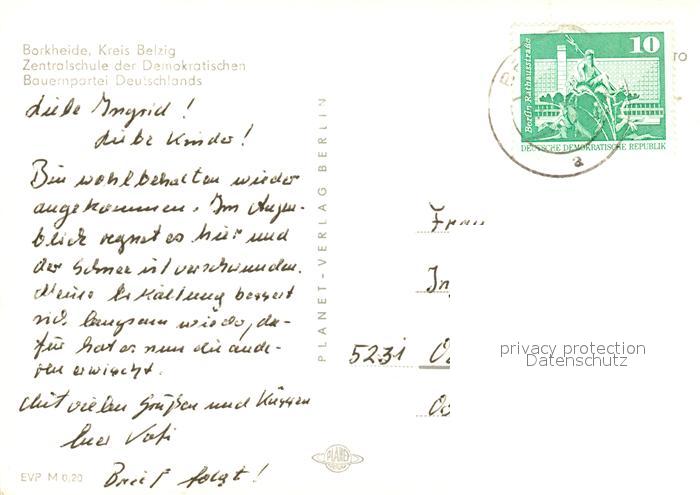 Borkheide, Kreis Belzig
Zentralschule der Demokratischen
Bauernpartei Deutschlands
Liebe Ingrid!
Liebe Kinder!
Bin wohlbehalten wieder
angekommen. Im Augen-
blick regnet es hier und
der Schnee ist verschwunden.
Meine Erkältung bessert
sich langsam wieder, da-
für hat es nun die ande-
ren erwischt.
Mit vielen Grüßen und Küssen
Euer Vati
Brief folgt!
EVP M 0,20
PLANET-VERLAG BERLIN
PLANET
Berlin Rathausstraße
10
DEUTSCHE DEMOKRATISCHE REPUBLIK
a
TO
5231
privacy protection
Datenschutz